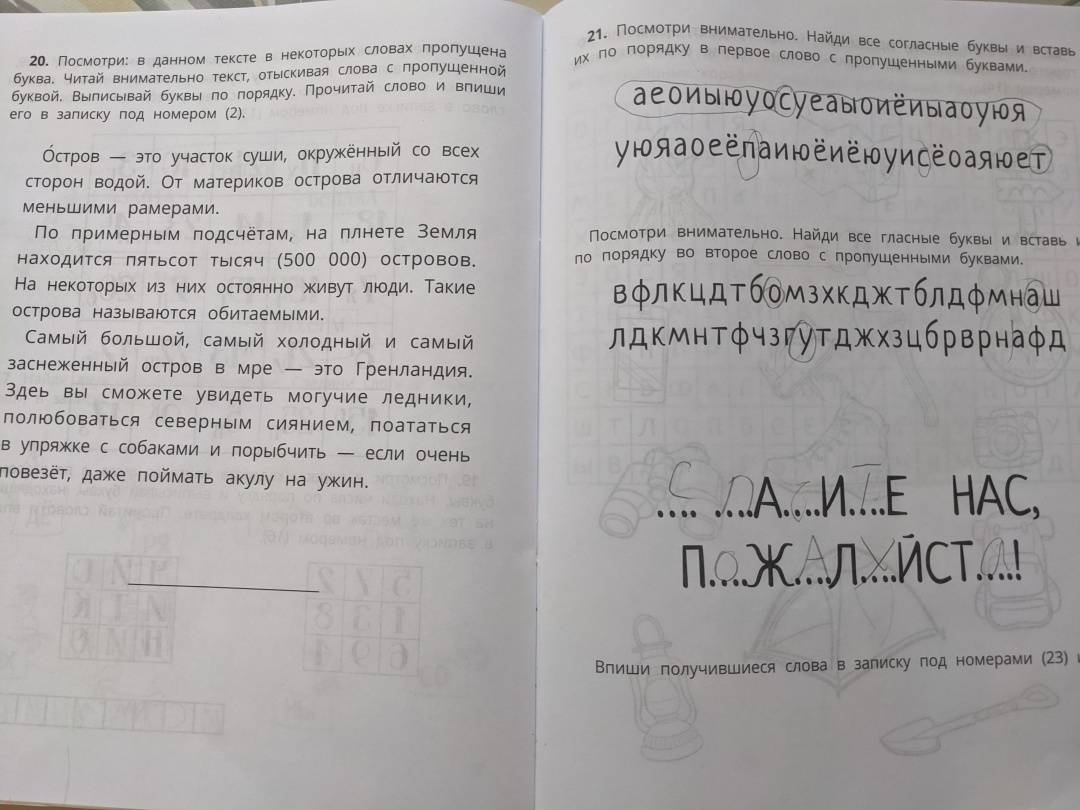 20. Посмотри: в данном тексте в некоторых словах пропущена
буква. Читай внимательно текст, отыскивая слова с пропущенной
буквой. Выписывай буквы по порядку. Прочитай слово и впиши
его в записку под номером (2).
О́стров — это участок суши, окружённый со всех
сторон водой. От материков острова отличаются
меньшими рамерами.
По примерным подсчётам, на плнете Земля
находится пятьсот тысяч (500 000) островов.
На некоторых из них остоянно живут люди. Такие
острова называются обитаемыми.
Самый большой, самый холодный и самый
заснеженный остров в мре — это Гренландия.
Здеь вы сможете увидеть могучие ледники,
полюбоваться северным сиянием, поататься
в упряжке с собаками и порыбчить — если очень
повезёт, даже поймать акулу на ужин.
21. Посмотри внимательно. Найди все согласные буквы и вставь
их по порядку в первое слово с пропущенными буквами.
аеоиыюуосуеаыоиёиыаоуюя
уюяаоеёпаиюёиёюуисёоаяюет
Посмотри внимательно. Найди все гласные буквы и вставь
по порядку во второе слово с пропущенными буквами.
вфлкцдтбомзхкджтблдфмнаш
лдкмнтфчзгутджхзцбрврнафд
СПАСИТЕ НАС,
ПОЖАЛУЙСТА!
Впиши получившиеся слова в записку под номерами (23)